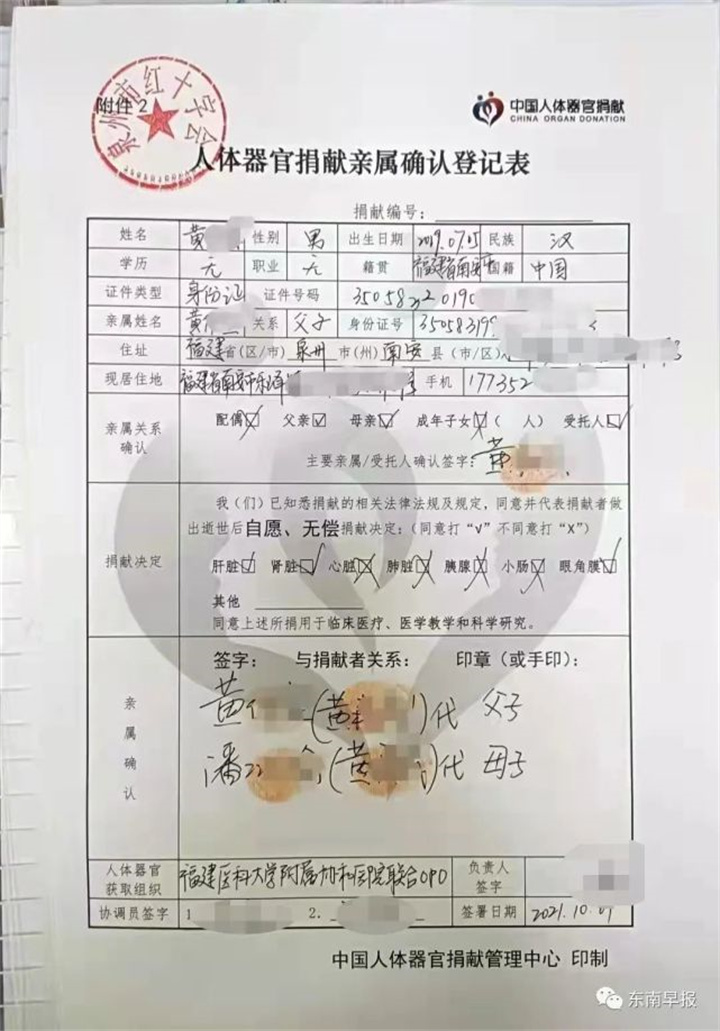 泉州市红十字会
附件 2
中国人体器官捐献
CHINA ORGAN DONATION
人体器官捐献亲属确认登记表
捐献编号:
姓名 黄 性别 男 出生日期 2019.07.05 民族 汉
学历 无 职业 无 籍贯 福建省南安市 国籍 中国
证件类型 身份证 证件号码 35058 2 0190
亲属姓名 黄 关系 父子 身份证号 35058319
住址 福建省(区/市) 泉州 市(州) 南安 县(市/区)
现居住地 福建省南安市乐峰 手机 177352
亲属关系确认 配偶☒ 父亲☑ 母亲☑ 成年子女☒( 人) 受托人☑
主要亲属/受托人确认签字: 黄
捐献决定
我(们)已知悉捐献的相关法律法规及规定,同意并代表捐献者做
出逝世后自愿、无偿捐献决定:(同意打“V”不同意打“X”)
肝脏☑ 肾脏☑ 心脏☒ 肺脏☒ 胰腺☒ 小肠☒ 眼角膜☑
其他
同意上述所捐用于临床医疗、医学教学和科学研究。
亲属确认
签字: 与捐献者关系: 印章(或手印):
黄 (黄 )代 父子
潘 (黄 )代 母子
人体器官获取组织 福建医科大学附属协和医院联合OPO 负责人签字
协调员签字 1 2. 签署日期 2021.10.09
中国人体器官捐献管理中心 印制
东南早报